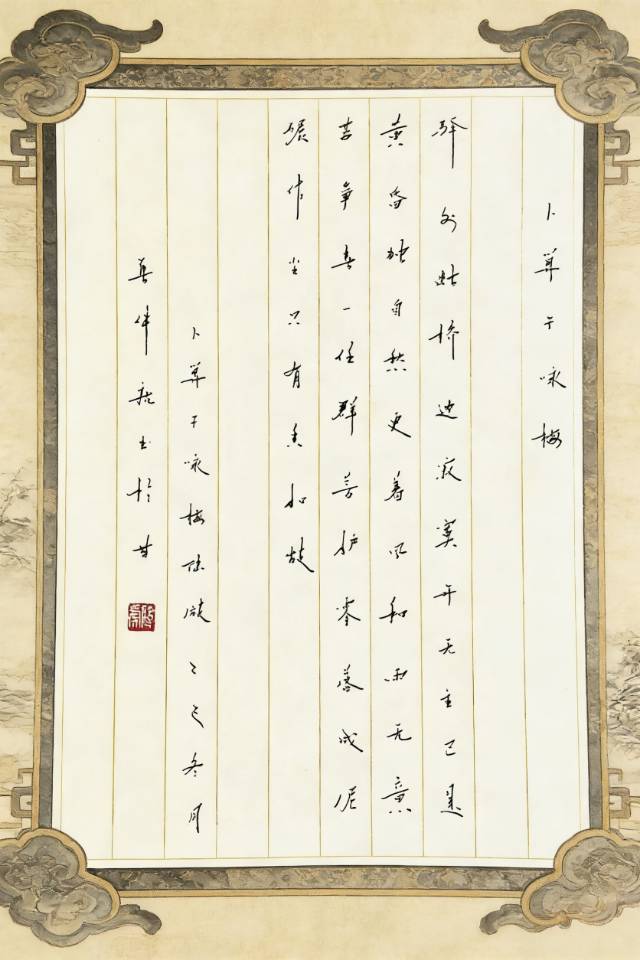 卜算子咏梅
驿外断桥边寂寞开无主已是
黄昏独自愁更着风和雨无意
苦争春一任群芳妒零落成泥
碾作尘只有香如故
卜算子咏梅陆游乙巳冬月
书